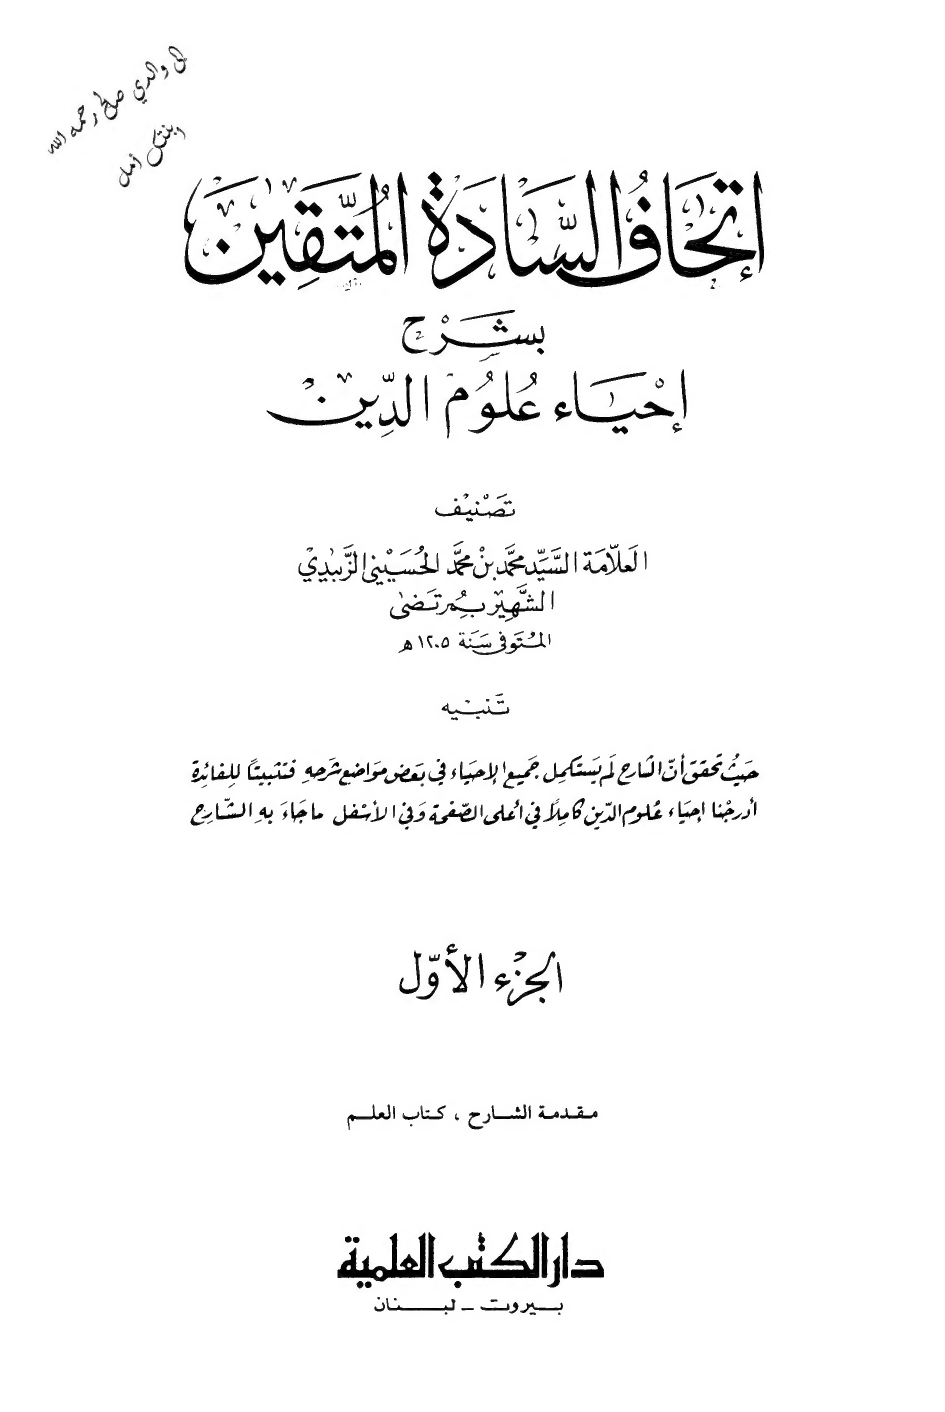 إلى والدي صالح رحمه الله
ابنتك أمل
إتحاف السادة المتقين
بشرح
إحياء علوم الدين
تصنيف
العلامة السيد محمد بن محمد الحسيني الزبيدي
الشهير بمرتضى
المتوفى سنة ١٢٠٥ ه
تنبيه
حيث تحقق أن الشارح لم يستكمل جميع الإحياء في بعض مواضع شرحه فتثبيتا للفائدة
أدرجنا إحياء علوم الدين كاملا في أعلى الصفحة وفي الأسفل ما جاء به الشارح
الجزء الأول
مقدمة الشارح ، كتاب العلم
دار الكتب العلمية
بيروت - لبنان